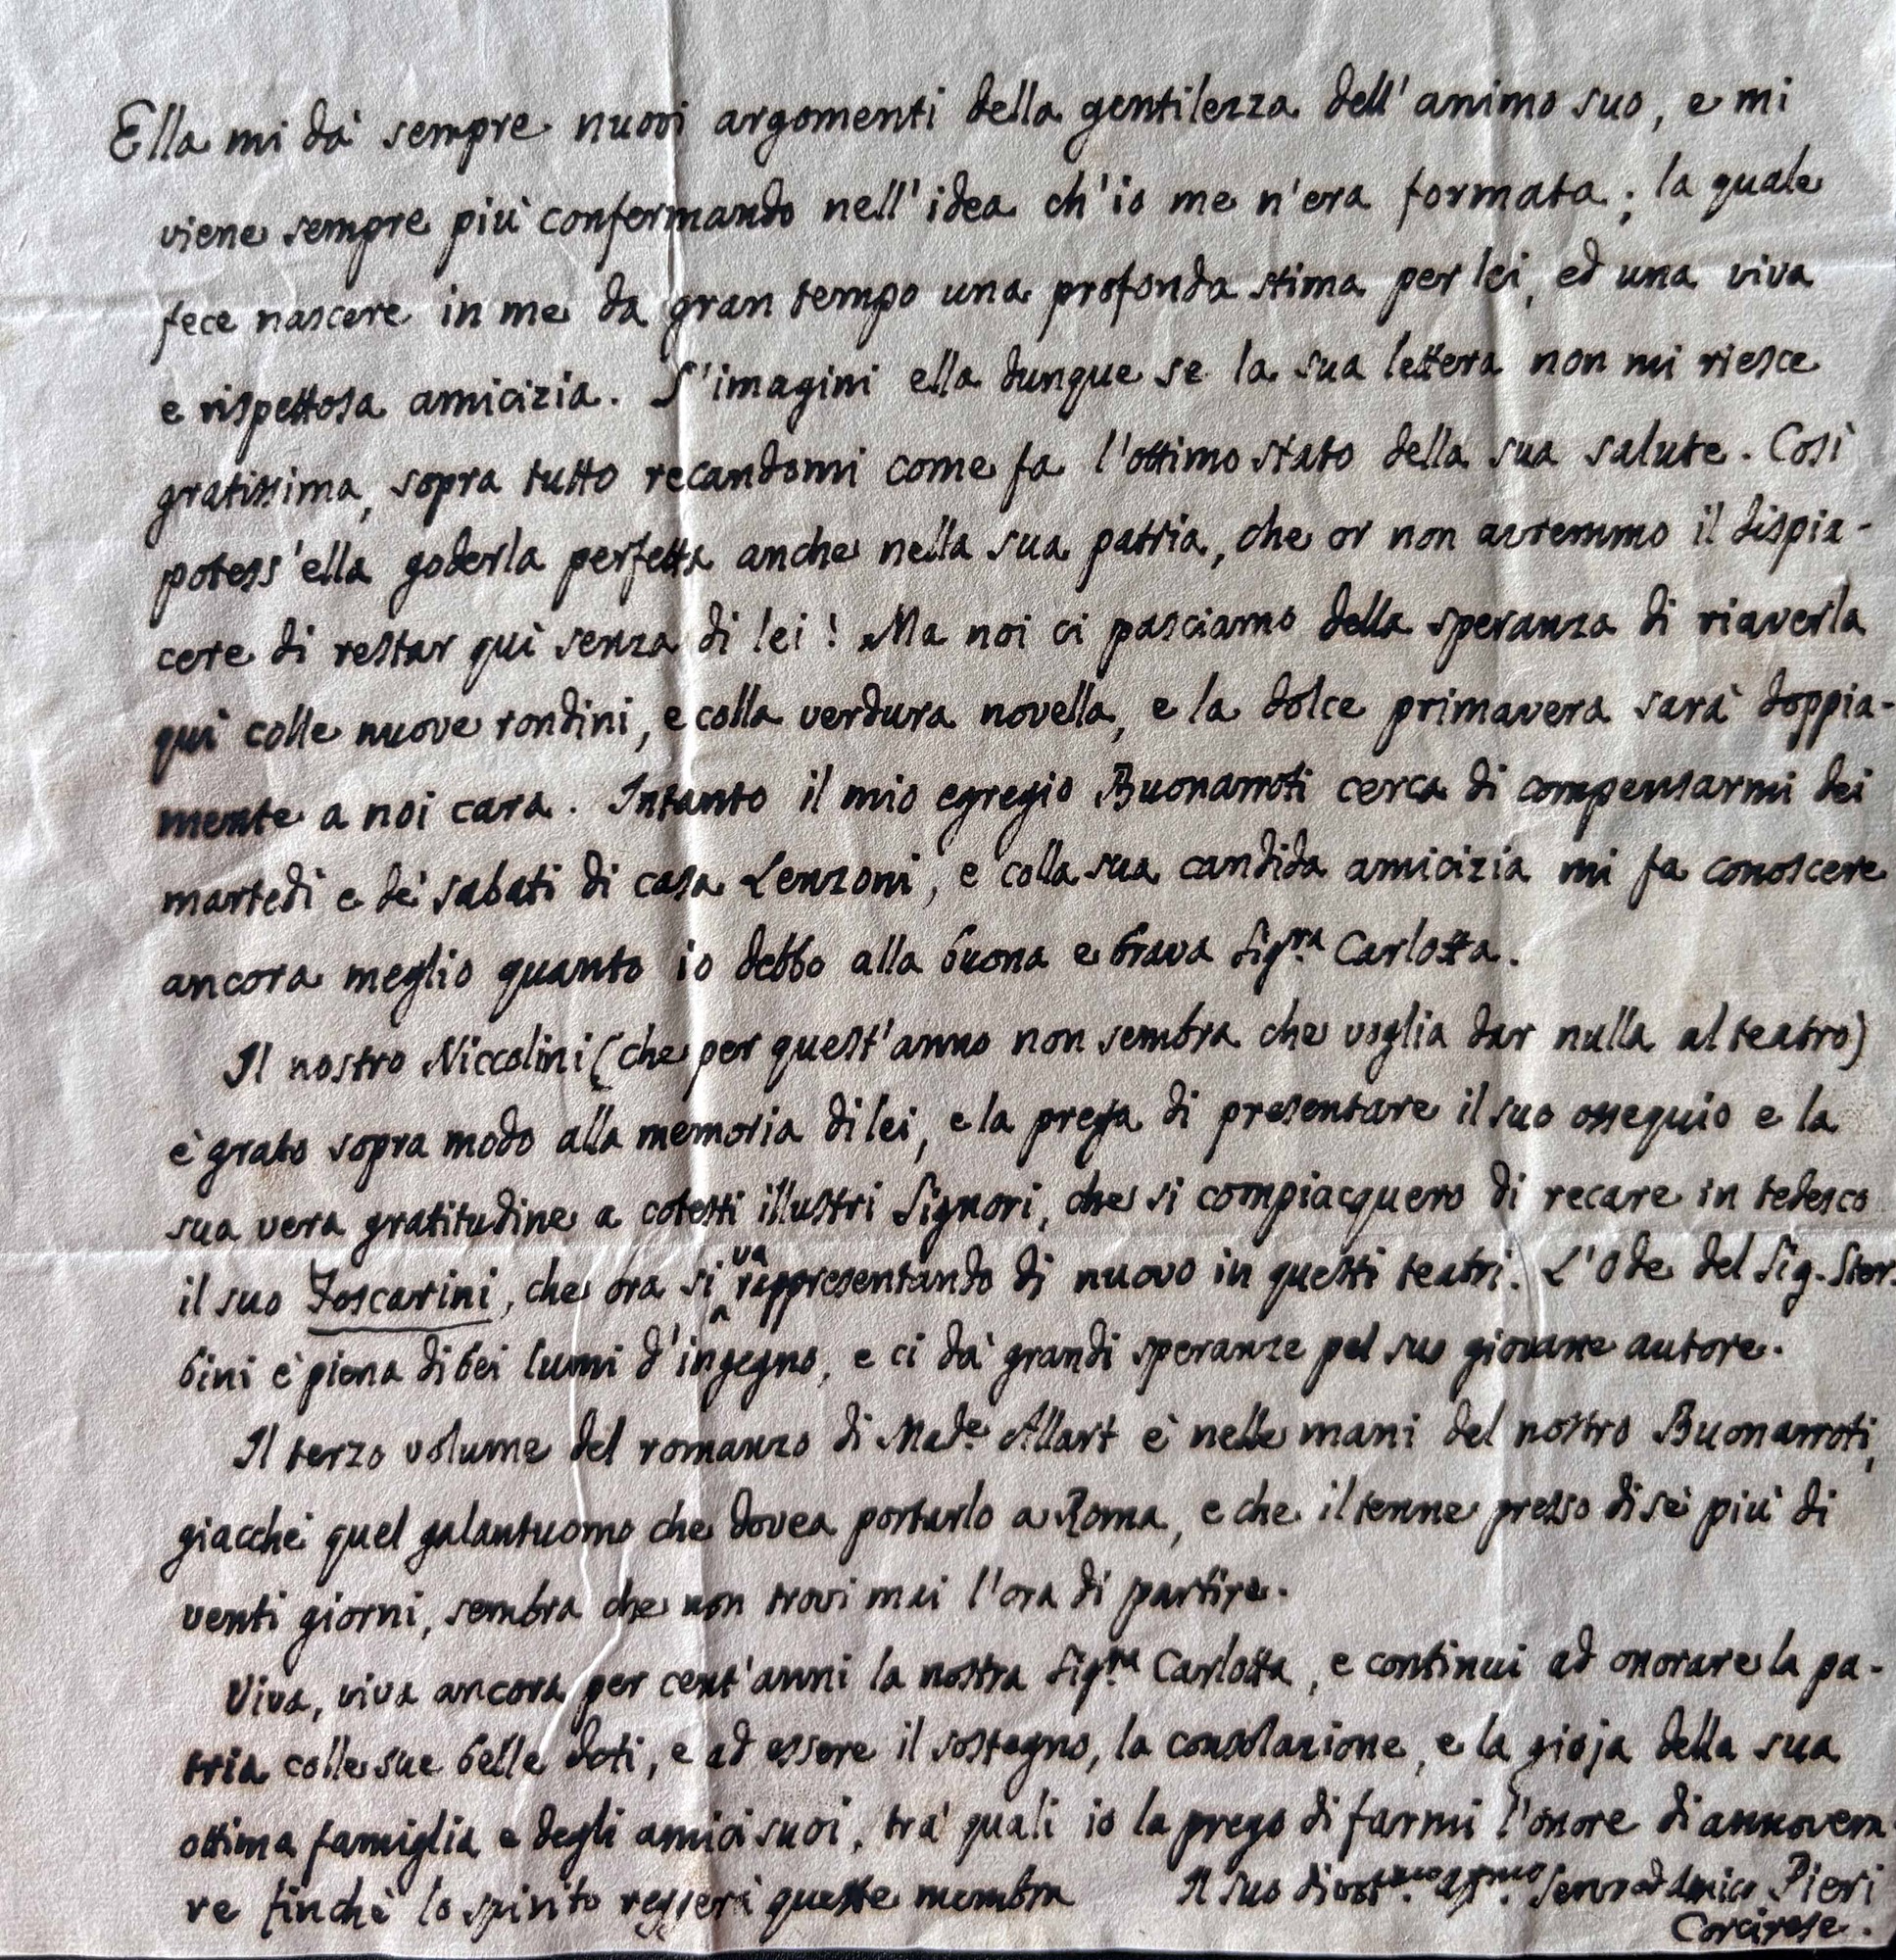 Ella mi dà sempre nuovi argomenti della gentilezza dell'animo suo, e mi
viene sempre più confermando nell'idea ch'io me n'era formata; la quale
fece nascere in me da gran tempo una profonda stima per lei, ed una viva
e rispettosa amicizia. S'imagini ella dunque se la sua lettera non mi riesce
gratissima, sopra tutto recandomi come fa l'ottimo stato della sua salute. Così
potess'ella goderla perfetta anche nella sua patria, che or non avremmo il dispia-
cere di restar quì senza di lei! Ma noi ci pasciamo della speranza di riaverla
quì colle nuove rondini, e colla verdura novella, e la dolce primavera sarà doppia-
mente a noi cara. Intanto il mio egregio Buonarroti cerca di compensarmi dei
martedì e de' sabati di casa Lenzoni, e colla sua candida amicizia mi fa conoscere
ancora meglio quanto io debbo alla buona e brava Sig.ra Carlotta.
Il nostro Niccolini (che per quest'anno non sembra che voglia dar nulla al teatro)
è grato sopra modo alla memoria di lei, e la prega di presentare il suo ossequio e la
sua vera gratitudine a cotesti illustri Signori, che si compiacquero di recare in tedesco
il suo Foscarini, che ora si va rappresentando di nuovo in questi teatri. L'Ode del Sig. Ster-
bini è piena di bei lumi d'ingegno, e ci dà grandi speranze pel suo giovane autore.
Il terzo volume del romanzo di Made. Allart è nelle mani del nostro Buonarroti,
giacchè quel galantuomo che dovea portarlo a Roma, e che il tenne presso di sè più di
venti giorni, sembra che non trovi mai l'ora di partire.
Viva, viva ancora per cent'anni la nostra Sig.ra Carlotta, e continui ad onorare la pa-
tria colle sue belle doti, e ad essere il sostegno, la consolazione, e la gioja della sua
ottima famiglia e degli amici suoi, tra' quali io la prego di farmi l'onore di annovera-
re finchè lo spirito reggerà queste membra Il suo servo ed amico Pieri
Corcirese.